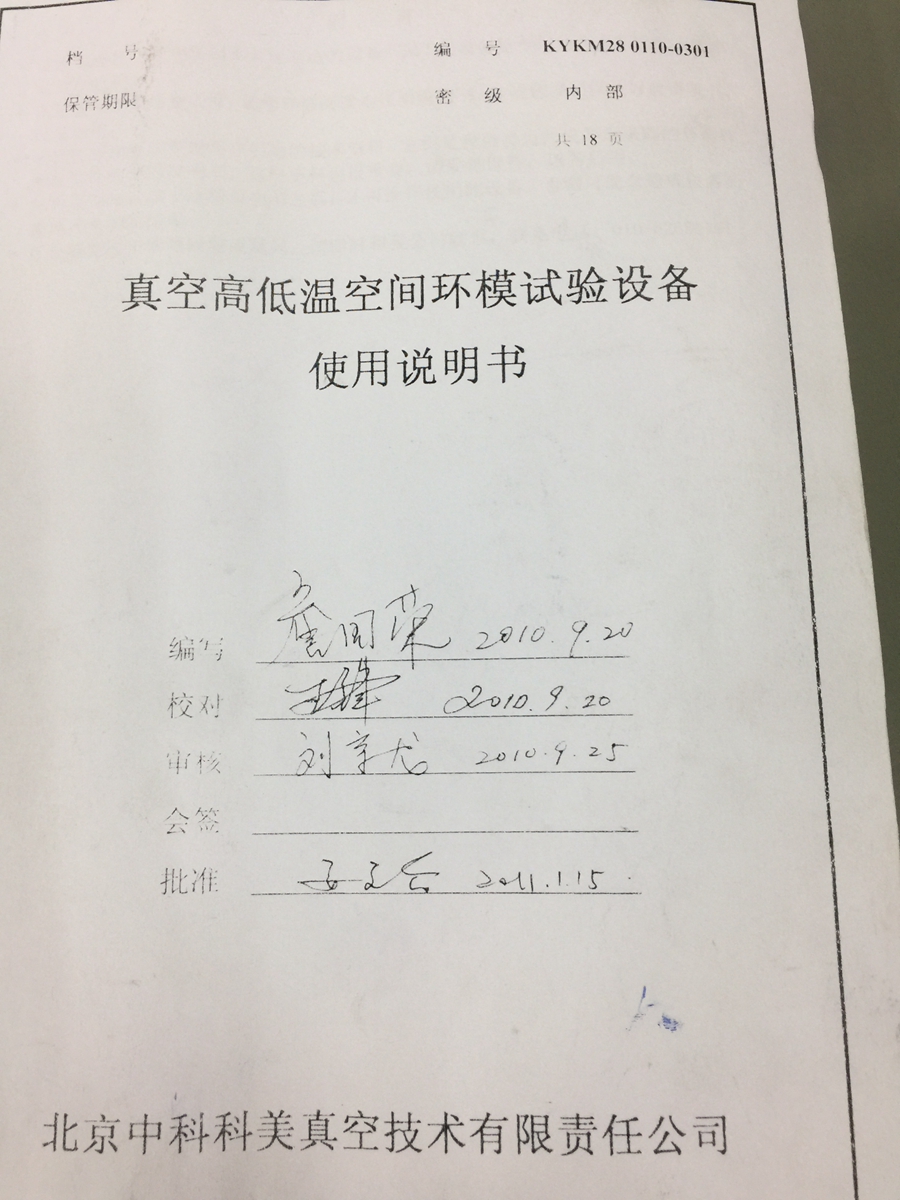 档 号 编 号 KYKM28 0110-0301
保管期限 密 级 内 部
共 18 页
真空高低温空间环模试验设备
使用说明书
编写 2010.9.20
校对 2010.9.20
审核 2010.9.25
会签
批准 2011.1.15
北京中科科美真空技术有限责任公司